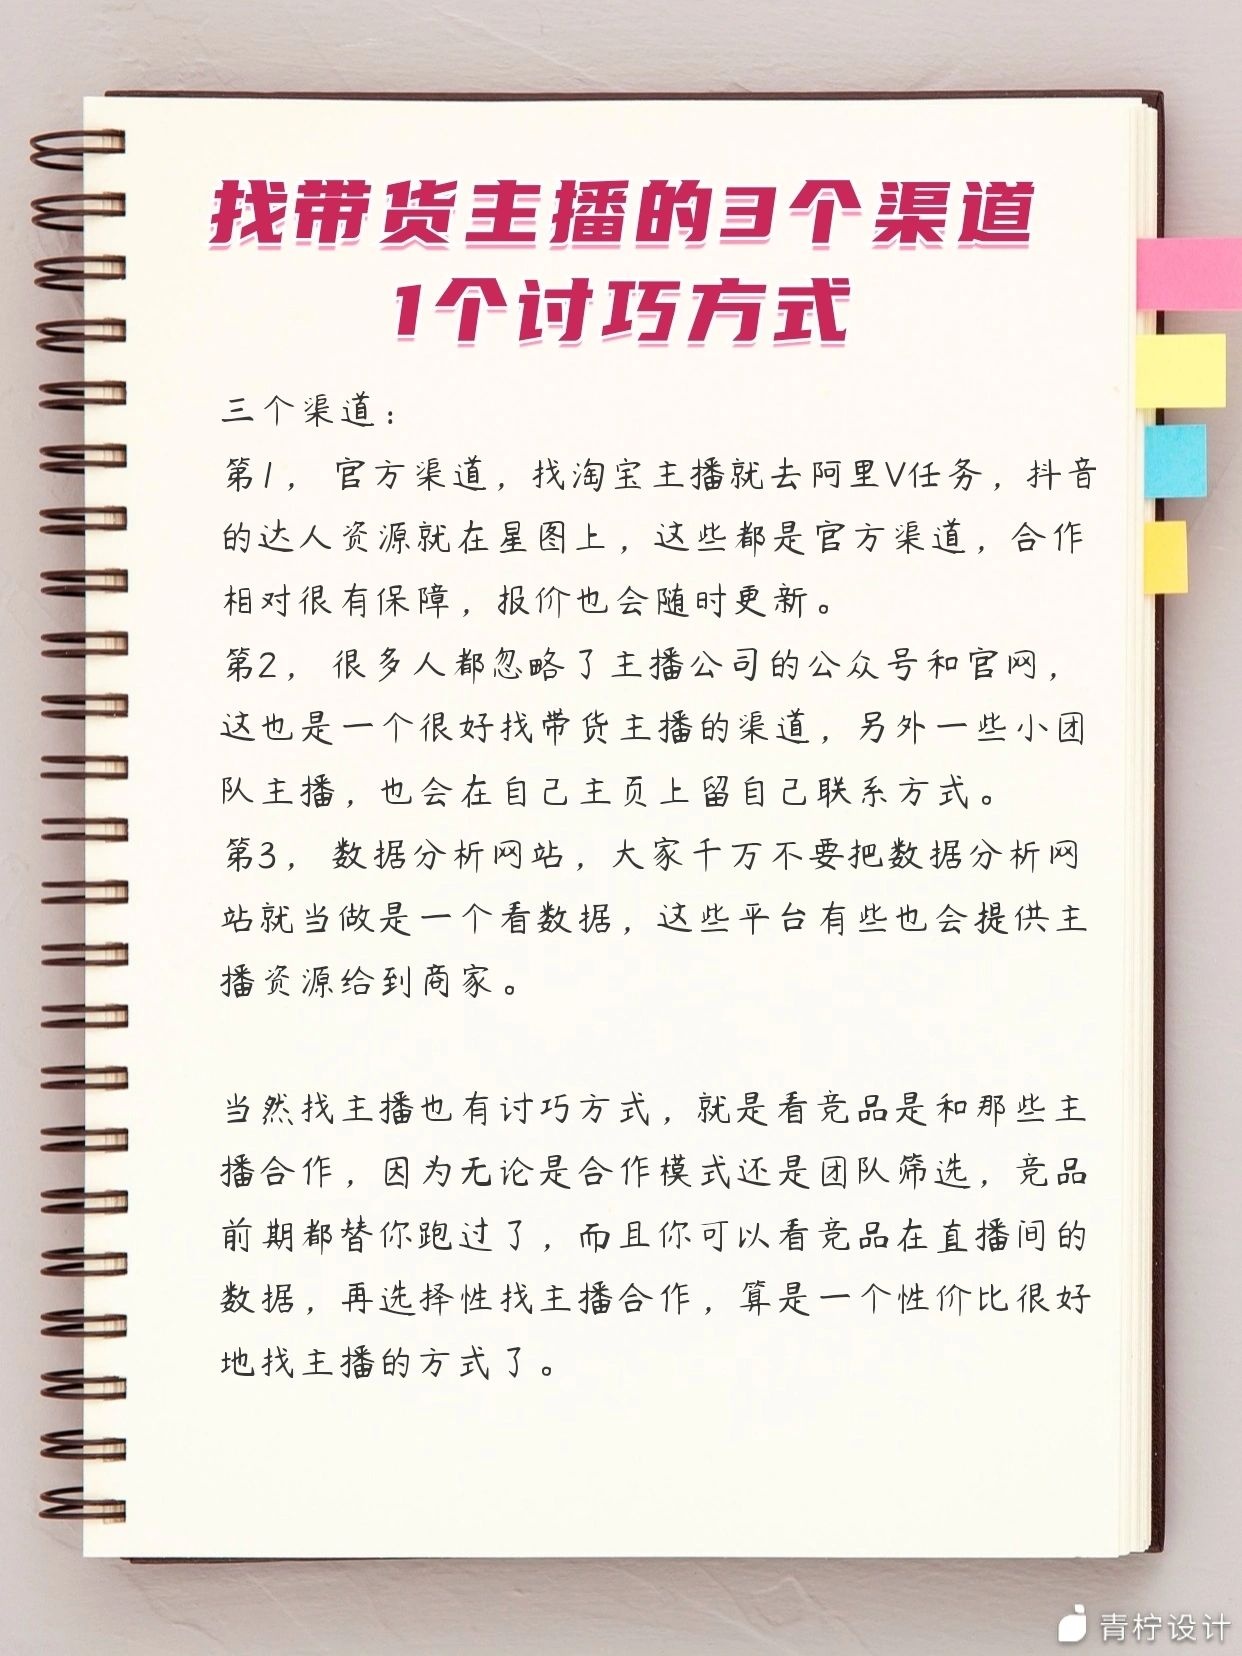 找带货主播的3个渠道
1个讨巧方式
三个渠道：
第1，官方渠道，找淘宝主播就去阿里V任务，抖音
的达人资源就在星图上，这些都是官方渠道，合作
相对很有保障，报价也会随时更新。
第2，很多人都忽略了主播公司的公众号和官网，
这也是一个很好找带货主播的渠道，另外一些小团
队主播，也会在自己主页上留自己联系方式。
第3，数据分析网站，大家千万不要把数据分析网
站就当做是一个看数据，这些平台有些也会提供主
播资源给到商家。
当然找主播也有讨巧方式，就是看竞品是和那些主
播合作，因为无论是合作模式还是团队筛选，竞品
前期都替你跑过了，而且你可以看竞品在直播间的
数据，再选择性找主播合作，算是一个性价比很好
地找主播的方式了。
青柠设计